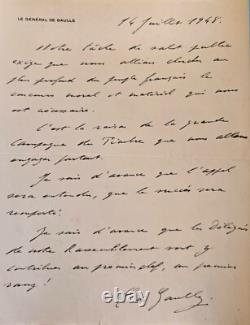 LE GÉNÉRAL DE GAULLE
14 Juillet 1948.
Notre tâche de salut public
exige que nous allions chercher au
plus profond du peuple français le
concours moral et matériel qui nous
est nécessaire.
C'est la raison de la grande
Campagne du Timbre que nous allons
engager partout.
Je sais d'avance que l'appel
sera entendu, que le succès sera
remporté!
Je sais d'avance que les Délégués
de notre Rassemblement vont y
contribuer au premier chef, au premier
rang!
C. de Gaulle